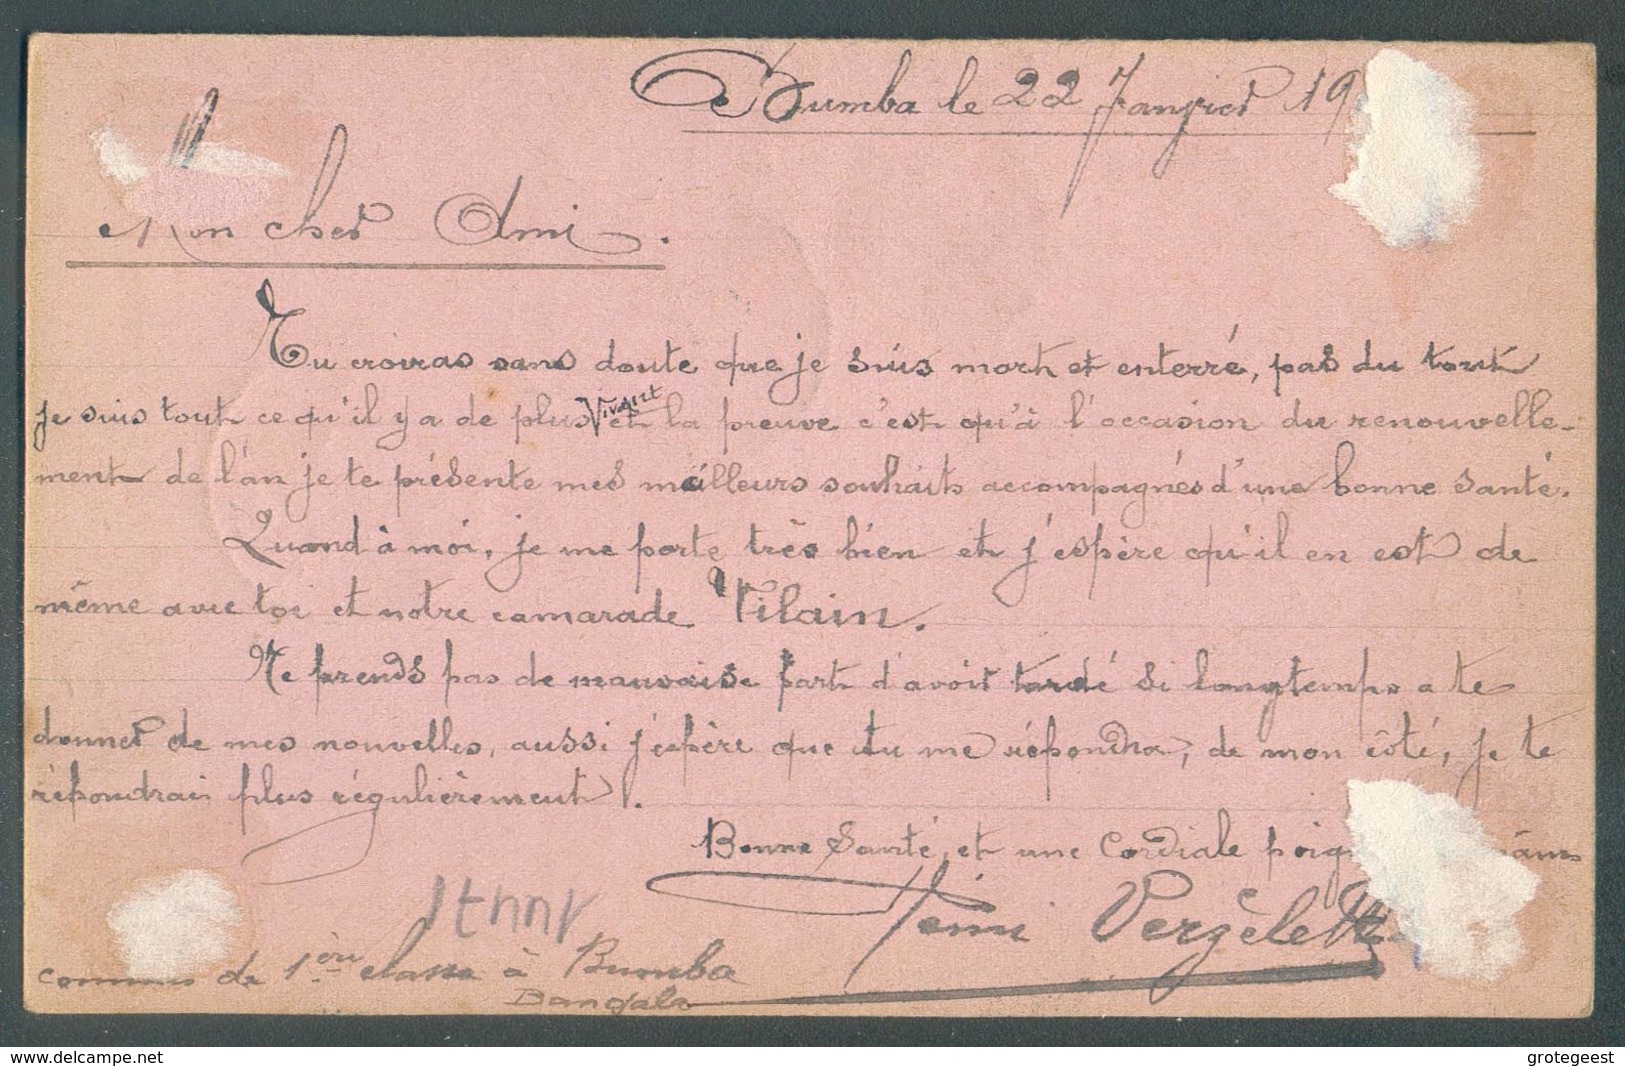 Bumba le 22 Janvier 19
Mon cher Ami.
Tu croiras sans doute que je suis mort et enterré, pas du tout
je suis tout ce qu'il y a de plus vivant et la preuve c'est qu'à l'occasion du renouvelle-
ment de l'an je te présente mes meilleurs souhaits accompagnés d'une bonne santé.
Quand à moi, je me porte très bien et j'espère qu'il en est de
même avec toi et notre camarade Vilain.
Ne prends pas de mauvaise part d'avoir tardé si longtemps a te
donner de mes nouvelles, aussi j'espère que tu me répondra, de mon côté, je te
répondrai plus régulièrement.
Bonne Santé, et une Cordiale poig
commis de 1ère classe à Bumba
Bangala
delcampe.net
grotegeest